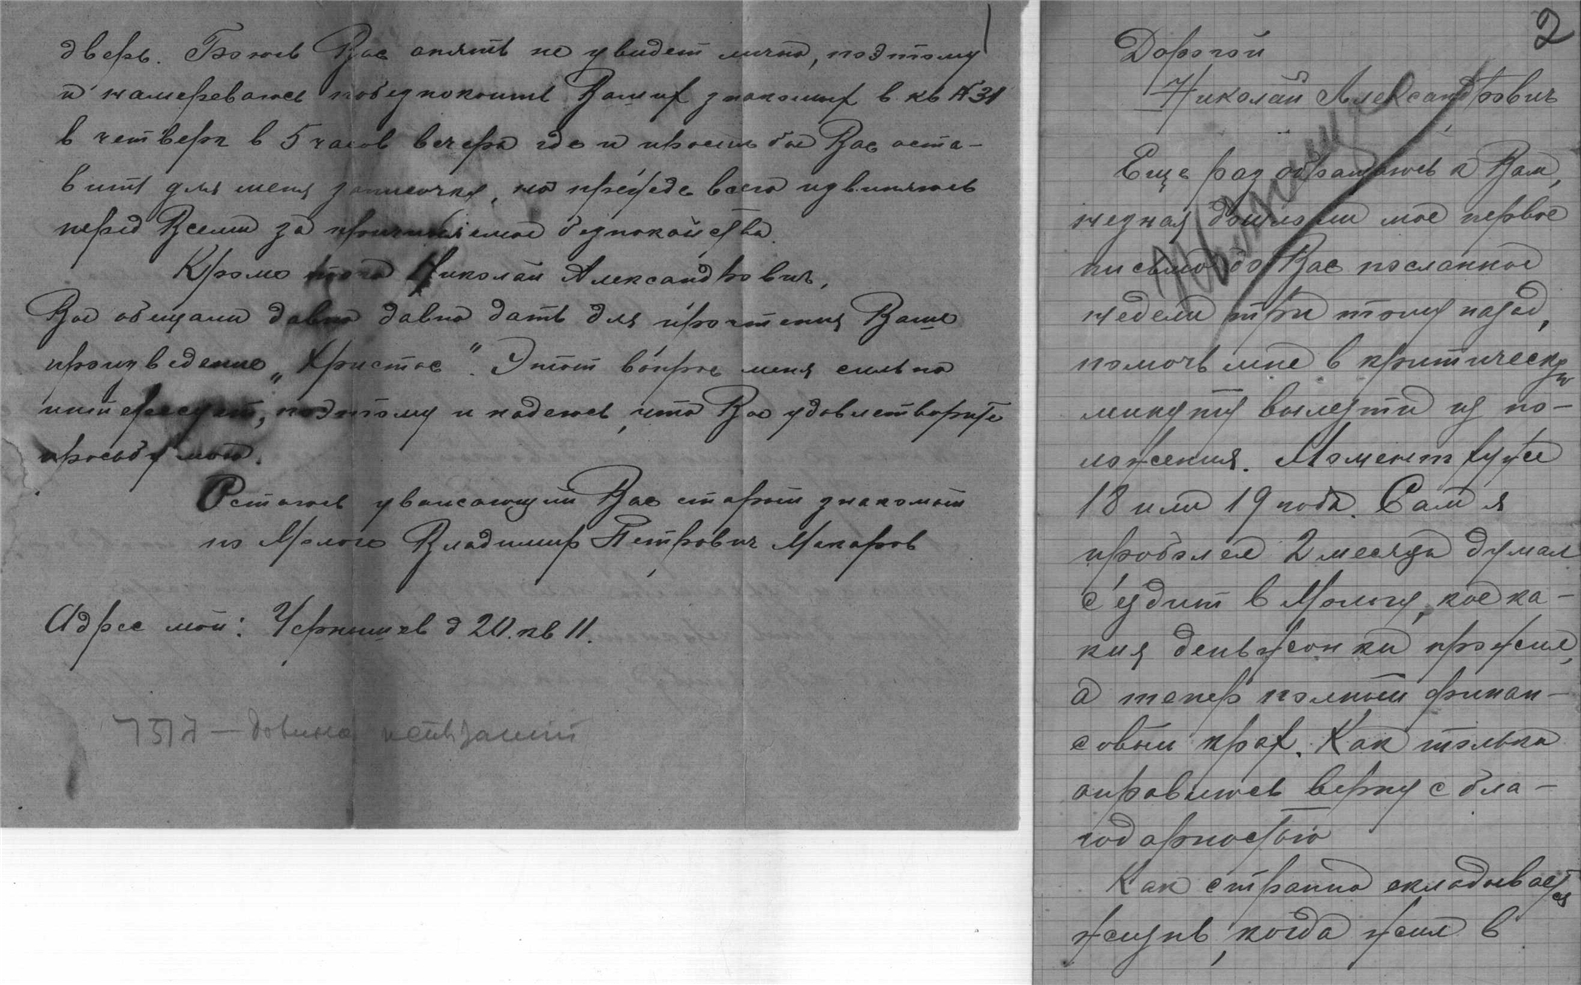 дверь. Боюсь Вас опять не увидет лично, поэтому
и намереваюсь побезпокоить Ваших знакомых в кв № 31
в четверг в 5 часов вечера где и просил бы Вас оста-
вить для меня записочку, но прежде всего извиняюсь
перед Всеми за причиняемое безпокойства.
Кроме того Николай Александрович,
Вы обещали давно давно дать для прочтения Ваше
произведение „Христос“. Этот вопрос меня сильно
интересует, поэтому и надеюсь, что Вы удовлетворите
просьбу мою.
Остаюсь уважающий Вас старый знакомый
по Мологе Владимир Петрович Макаров
Адрес мой: Чернышев д 20. кв 11.
1
2
Дорогой
Николай Александрович
Еще раз обращаюсь к Вам,
незная дошло ли мое первое
письмо до Вас посланное
недели три тому назад,
помочь мне в критическую
минуту вылезти из по-
ложения. Момент хуже
18 или 19 года. Сам я
проболел 2 месяца думал
съездит в Мологу, кое ка-
кия деньжонки прожил,
а теперь полный финан-
совый крах. Как только
оправлюсь верну с бла-
годарностью
Как странно складывается
жизнь, когда жил в